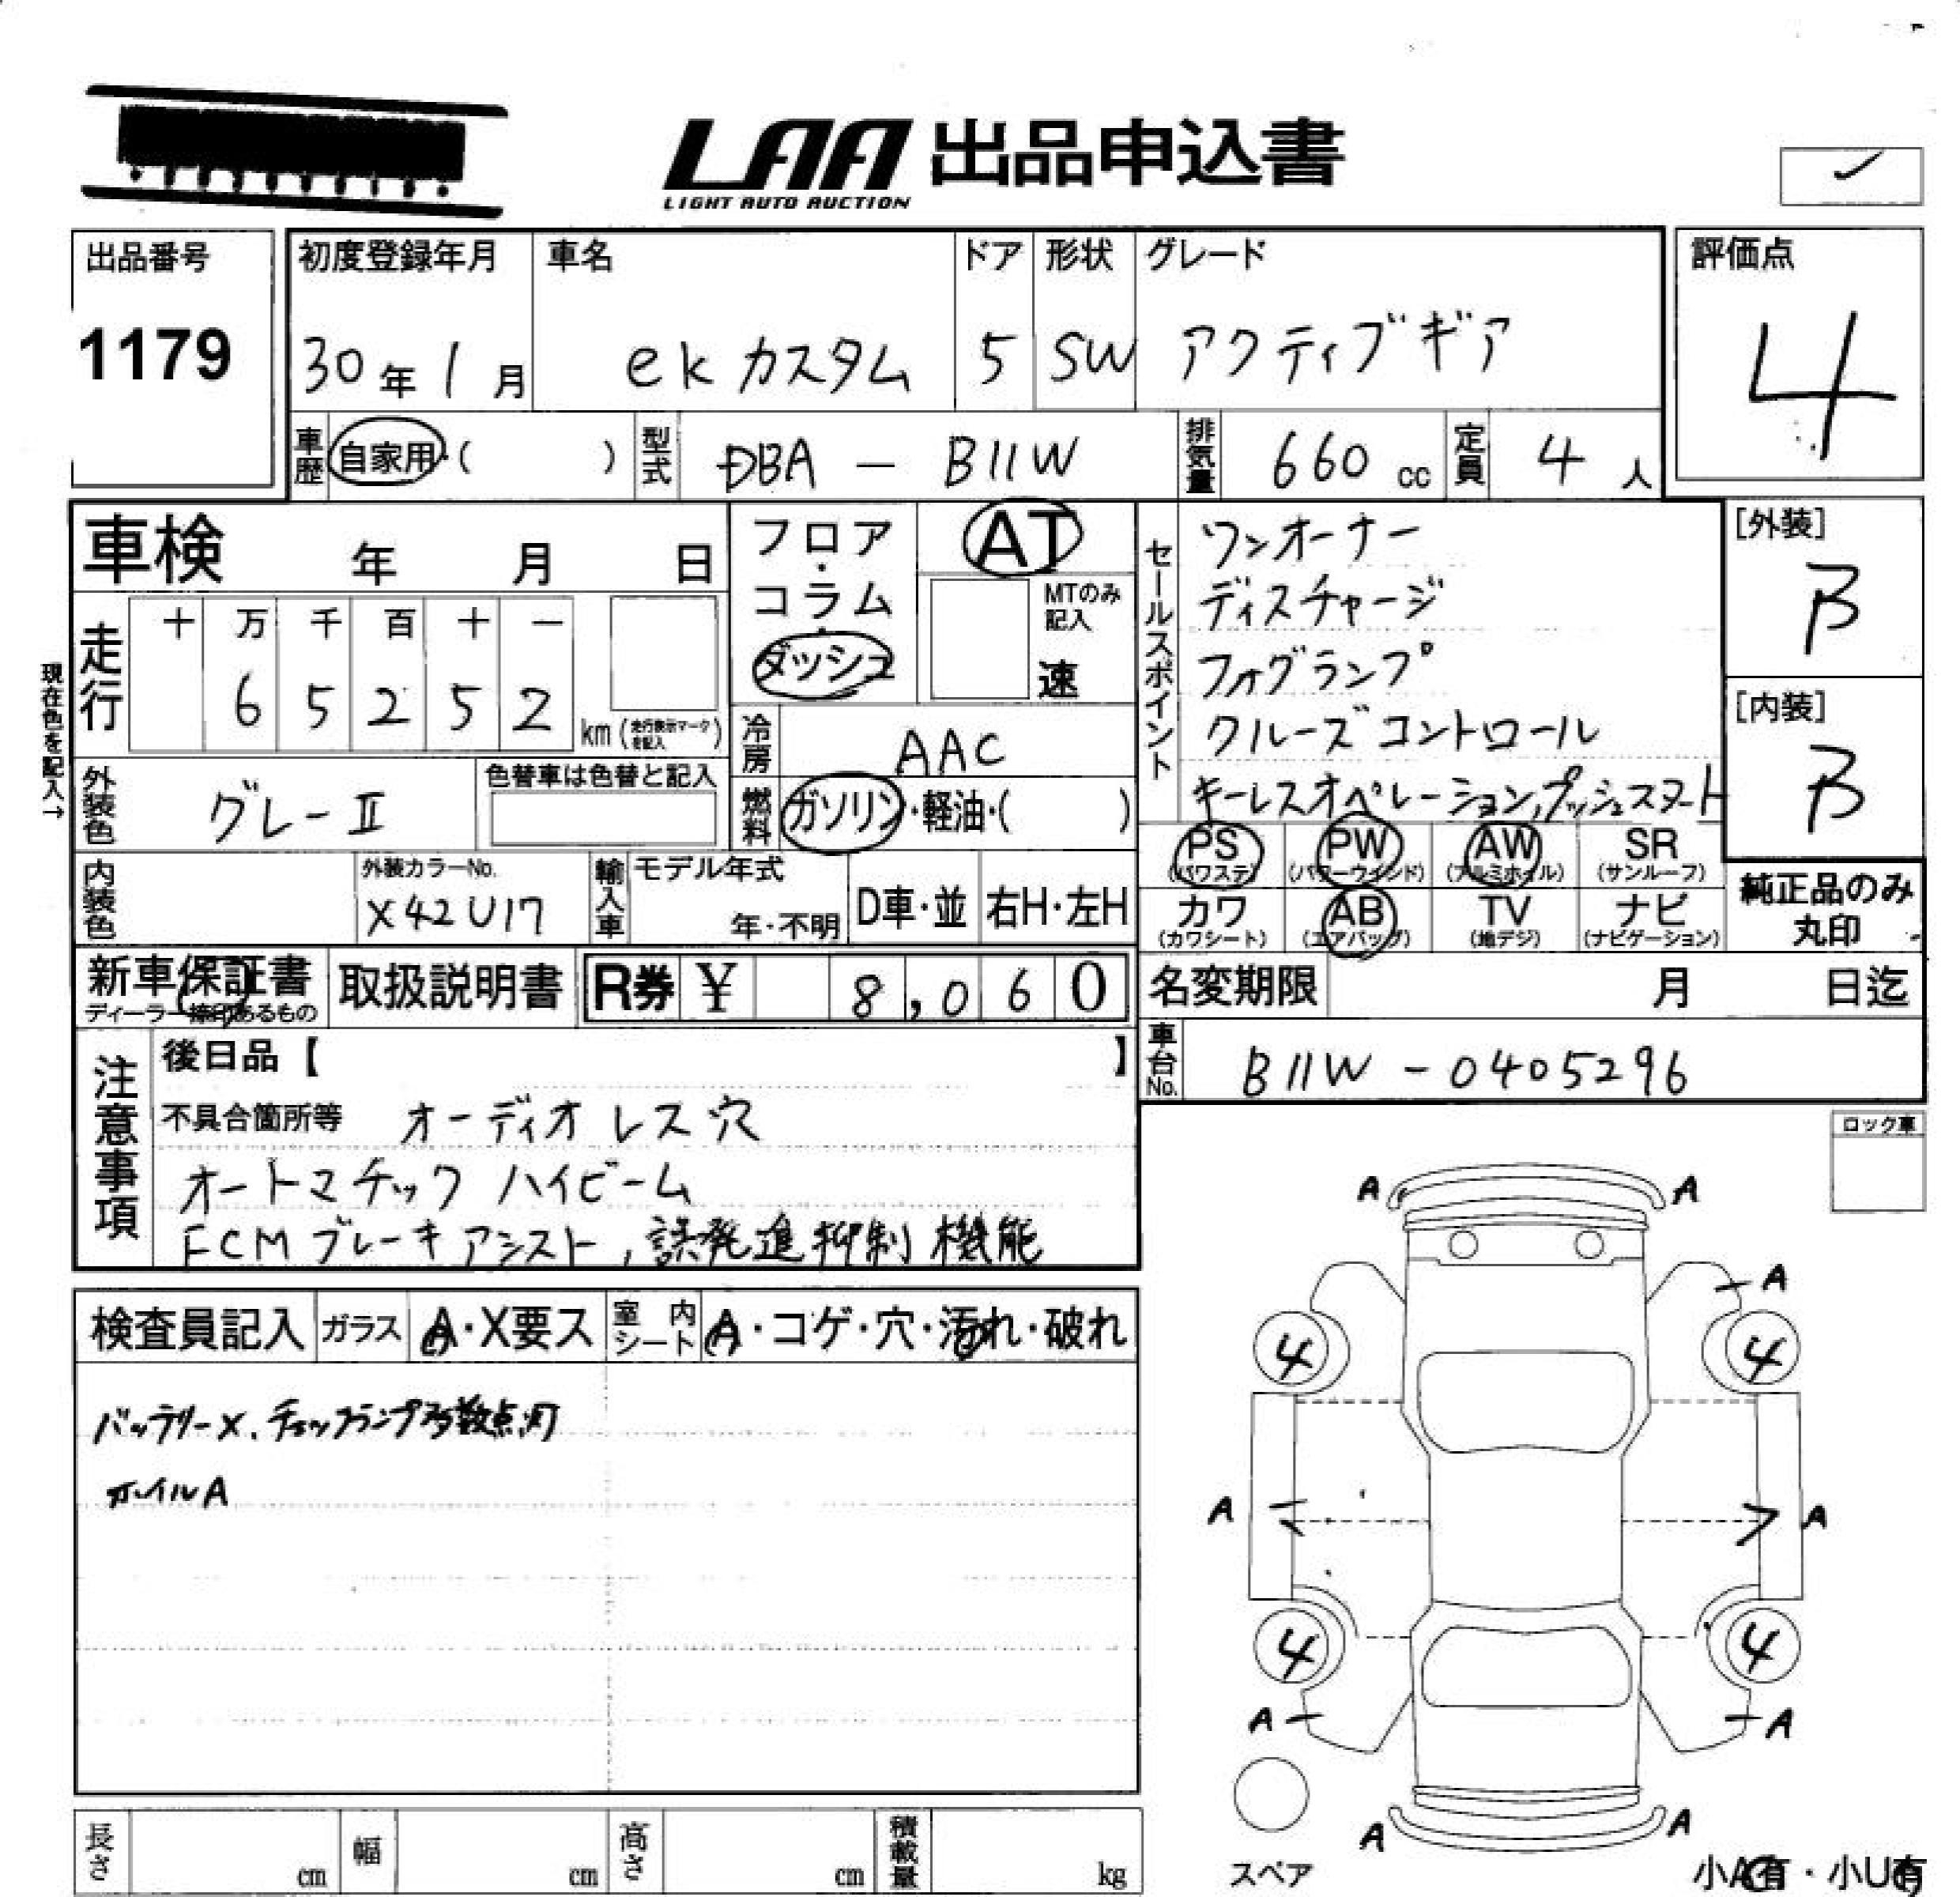 LAA 出品申込書
LIGHT AUTO AUCTION
出品番号
1179
初度登録年月
30年1月
車名
ek カスタム
ドア
5
形状
SW
グレード
アクティブギア
評価点
4
車歴
自家用・( )
型式
DBA - B11W
排気量
660 cc
定員
4 人
車検 年 月 日
フロア・コラム・ダッシュ
AT
MTのみ記入
速
セールスポイント
ワンオーナー
ディスチャージ
フォグランプ
クルーズコントロール
キーレスオペレーション,プッシュスタート
[外装]
B
[内装]
B
現在色を記入→
走行
十 万 千 百 十 一
6 5 2 5 2
km (走行表示マークを記入)
冷房
AAC
外装色
グレーII
色替車は色替と記入
燃料
ガソリン・軽油・( )
PS (パワステ)
PW (パワーウインド)
AW (アルミホイル)
SR (サンルーフ)
カワ (カワシート)
AB (エアバッグ)
TV (地デジ)
ナビ (ナビゲーション)
純正品のみ丸印
内装色
外装カラーNo.
X42U17
輸入車
モデル年式
年・不明
D車・並
右H・左H
新車保証書
ディーラー捺印あるもの
取扱説明書
R券 ¥ 8,060
名変期限 月 日迄
車台No.
B11W - 0405296
注意事項
後日品【 】
不具合箇所等 オーディオレス穴
オートマチック ハイビーム
FCMブレーキアシスト,誤発進抑制機能
ロック車
検査員記入
ガラス
A・X要ス
室内シート
A・コゲ・穴・汚れ・破れ
バッテリーX. チェックランプ多数点灯
ホイルA
A A
A
4 4
A A
4 4
A A
A A
スペア
小A有・小U有
長さ cm
幅 cm
高さ cm
積載量 kg